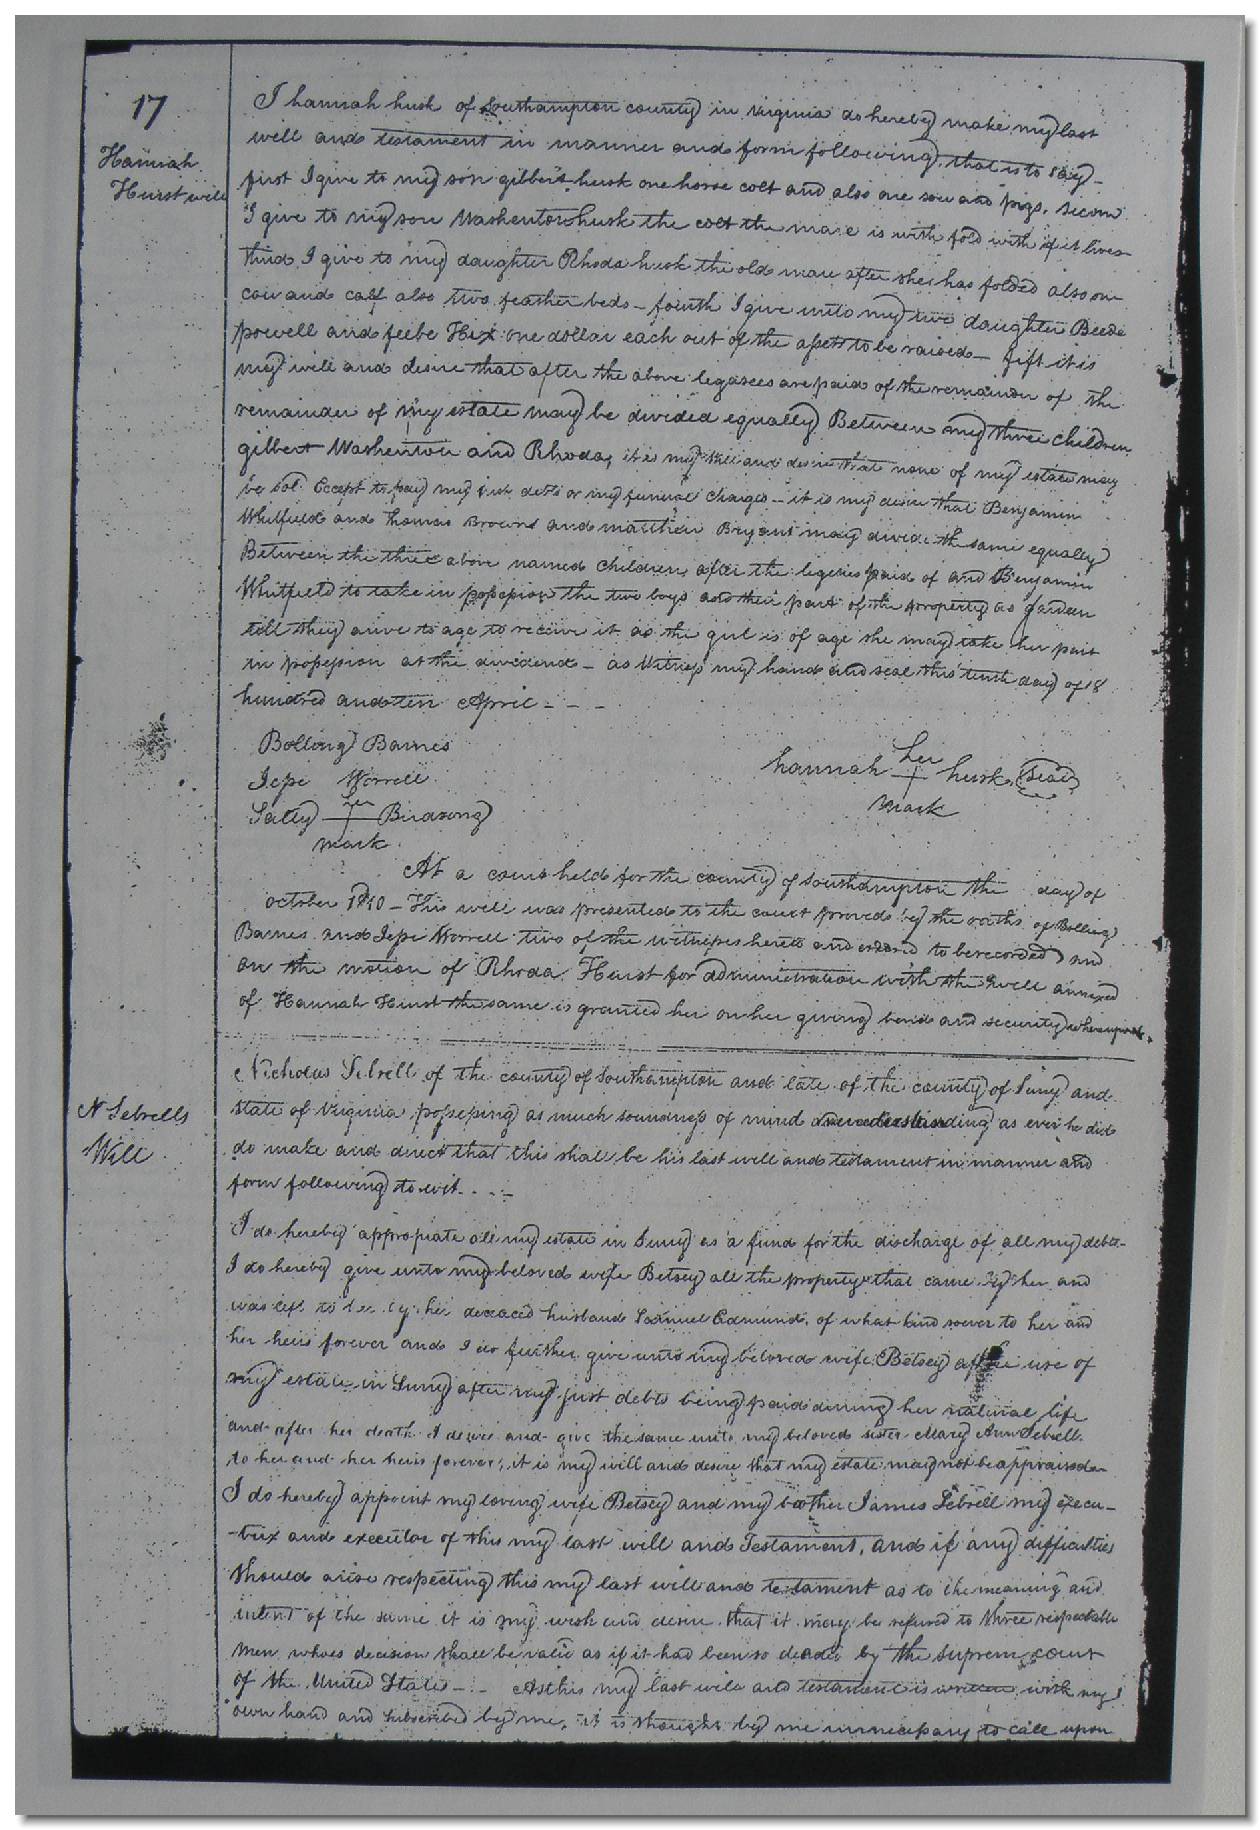 17
Hannah
Hurst will
I hannah husk of Southampton county in virginia do hereby make my last
will and testament in manner and form following, that is to say—
first I give to my son gilbert husk one horse colt and also one sow and pigs. secon
I give to my son Washenton husk the colt the mare is with fold with if it lives
third I give to my daughter Rhoda husk the old mare after she has folded also one
cow and calf also two feather beds — fourth I give unto my two daughter Beede
powell and feebe Hix one dollar each out of the assets to be raised — fift it is
my will and desire that after the above legasees are paid of the remainder of the
remainder of my estate may be divided equally Between my three children
gilbert Washenton and Rhoda, it is my will and desire that none of my estate may
be sol Except to pay my just debts or my funeral charges — it is my desire that Benjamin
Whitfield and Thomas Browns and matthew Bryant may divide the same equally
Between the three above named children after the legesies paid of and Benjamin
Whitfield to take in possession the two boys and their part of the property as gardeen
till they arive to age to receive it as the girl is of age she may take her part
in possession at the dividend — as Witness my hand and seal this tenth day of 18
hundred and ten April - - -
Bolling Barnes
Jesse Worrell
Sally her Birdsong
mark
hannah her husk Seal
mark
At a court held for the county of Southampton the day of
october 1810 — This will was presented to the court proved by the oaths of Bolling
Barnes and Jesse Worrell two of the witnesses hereto and ordered to be recorded and
on the motion of Rhoda Hurst for administration with the will annexed
of Hannah Hurst the same is granted her on her giving bond and security whereupon
N Sebrells
Will
Nicholas Sebrell of the county of Southampton and late of the county of Surry and
state of Virginia possessing as much soundness of mind and understanding as ever he did
do make and direct that this shall be his last will and testament in manner and
form following to wit - - -
I do hereby appropiate all my estate in Surry as a fund for the discharge of all my debts—
I do hereby give unto my beloved wife Betsey all the property that came by her and
was left to her by her deceaced husband Samuel Edmunds, of what kind soever to her and
her heirs forever and I do further give unto my beloved wife Betsey after use of
my estate in Surry after my just debts being paid during her natural life
and after her death I desire and give the same unto my beloved sister Mary Ann Sebrell
to her and her heirs forever; it is my will and desire that my estate may not be appraised—
I do hereby appoint my loving wife Betsey and my brother James Sebrell my execu-
-trix and executor of this my last will and Testament, and if any difficulties
should arise respecting this my last will and testament as to the meaning and
intent of the same it is my wish and desire that it may be refured to three respectable
men whoes decision shall be valid as if it had been so decided by the supreme court
of the United States — - As this my last will and testament is written with my
own hand and subscribed by me, it is thought by me unnecessary to call upon